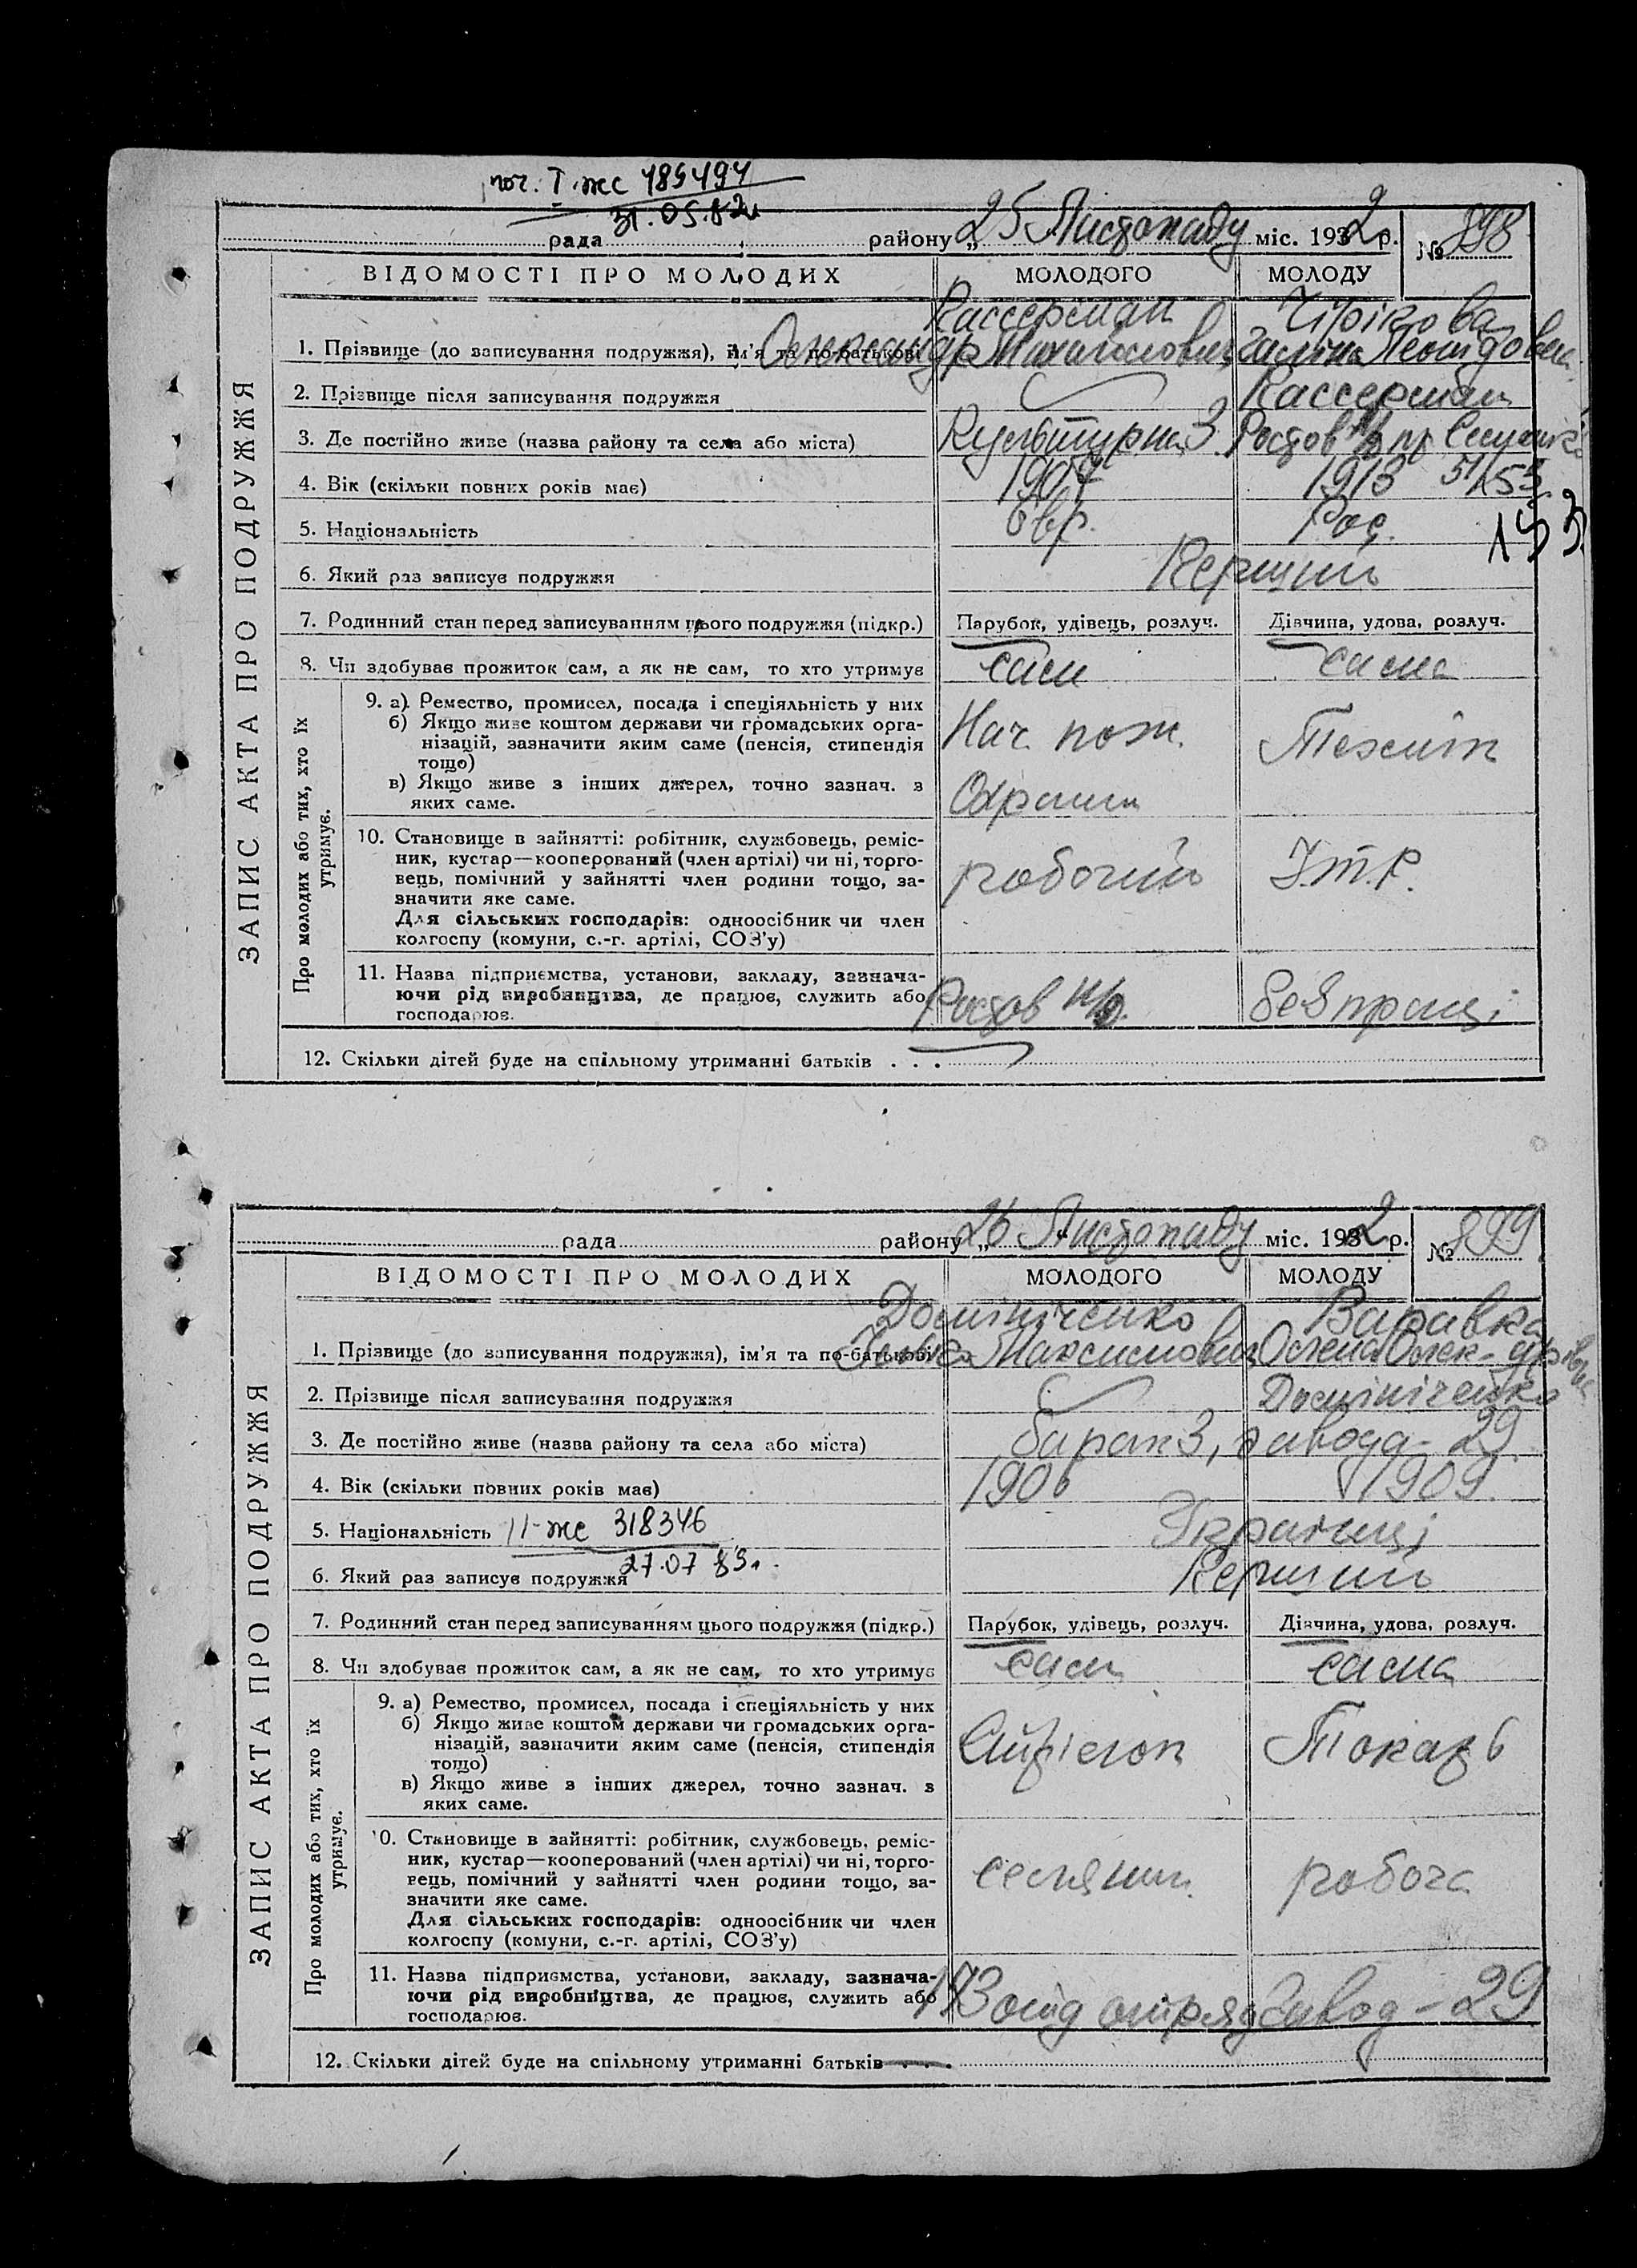 поч. І-жс 485494
31.05.82
рада району „25 Листопаду міс. 1932 р. № 898
ВІДОМОСТІ ПРО МОЛОДИХ МОЛОДОГО МОЛОДУ
Кассерман
1. Прізвище (до записування подружжя), ім'я та по-батькові Олександр Михайлович Галіна Леонідовна
2. Прізвище після записування подружжя Кассерман
3. Де постійно живе (назва району та села або міста) Культурна 3 Ростов н/Д пр
4. Вік (скільки повних років має) 1907 1913 51/153
5. Національність Євр. Рос. 153
6. Який раз записує подружжя Перший
7. Родинний стан перед записуванням цього подружжя (підкр.) Парубок, удівець, розлуч. Дівчина, удова, розлуч.
8. Чи здобуває прожиток сам, а як не сам, то хто утримує сам сама
9. а) Ремество, промисел, посада і спеціяльність у них
б) Якщо живе коштом держави чи громадських орга-
нізацій, зазначити яким саме (пенсія, стипендія
тощо)
в) Якщо живе з інших джерел, точно зазнач. з
яких саме.
Нач. пож. Технік
Охрани
10. Становище в зайнятті: робітник, службовець, реміс-
ник, кустар—кооперований (член артілі) чи ні, торго-
вець, помічний у зайнятті член родини тощо, за-
значити яке саме.
Для сільських господарів: одноосібник чи член
колгоспу (комуни, с.-г. артілі, СОЗ'у)
робочий І.Т.Р.
11. Назва підприємства, установи, закладу, зазнача-
ючи рід виробництва, де працює, служить або
господарює.
Ростов н/Д. без праці
12. Скільки дітей буде на спільному утриманні батьків . . .
ЗАПИС АКТА ПРО ПОДРУЖЖЯ
Про молодих або тих, хто їх
утримує.
рада району „26 Листопаду міс. 1932 р. № 899
ВІДОМОСТІ ПРО МОЛОДИХ МОЛОДОГО МОЛОДУ
Домініченко Варавка
1. Прізвище (до записування подружжя), ім'я та по-батькові Максимович Олена Олек-дрівна
2. Прізвище після записування подружжя Домініченко
3. Де постійно живе (назва району та села або міста) барак 3, завода - 29
4. Вік (скільки повних років має) 1906 1909
5. Національність ІІ-жс 318346 Українці
27.07 83
6. Який раз записує подружжя Перший
7. Родинний стан перед записуванням цього подружжя (підкр.) Парубок, удівець, розлуч. Дівчина, удова, розлуч.
8. Чи здобуває прожиток сам, а як не сам, то хто утримує сам сама
9. а) Ремество, промисел, посада і спеціяльність у них
б) Якщо живе коштом держави чи громадських орга-
нізацій, зазначити яким саме (пенсія, стипендія
тощо)
в) Якщо живе з інших джерел, точно зазнач. з
яких саме.
Токарь
10. Становище в зайнятті: робітник, службовець, реміс-
ник, кустар—кооперований (член артілі) чи ні, торго-
вець, помічний у зайнятті член родини тощо, за-
значити яке саме.
Для сільських господарів: одноосібник чи член
колгоспу (комуни, с.-г. артілі, СОЗ'у)
селянин робоча
11. Назва підприємства, установи, закладу, зазнача-
ючи рід виробництва, де працює, служить або
господарює.
отряд Завод - 29
12. Скільки дітей буде на спільному утриманні батьків . . .
ЗАПИС АКТА ПРО ПОДРУЖЖЯ
Про молодих або тих, хто їх
утримує.